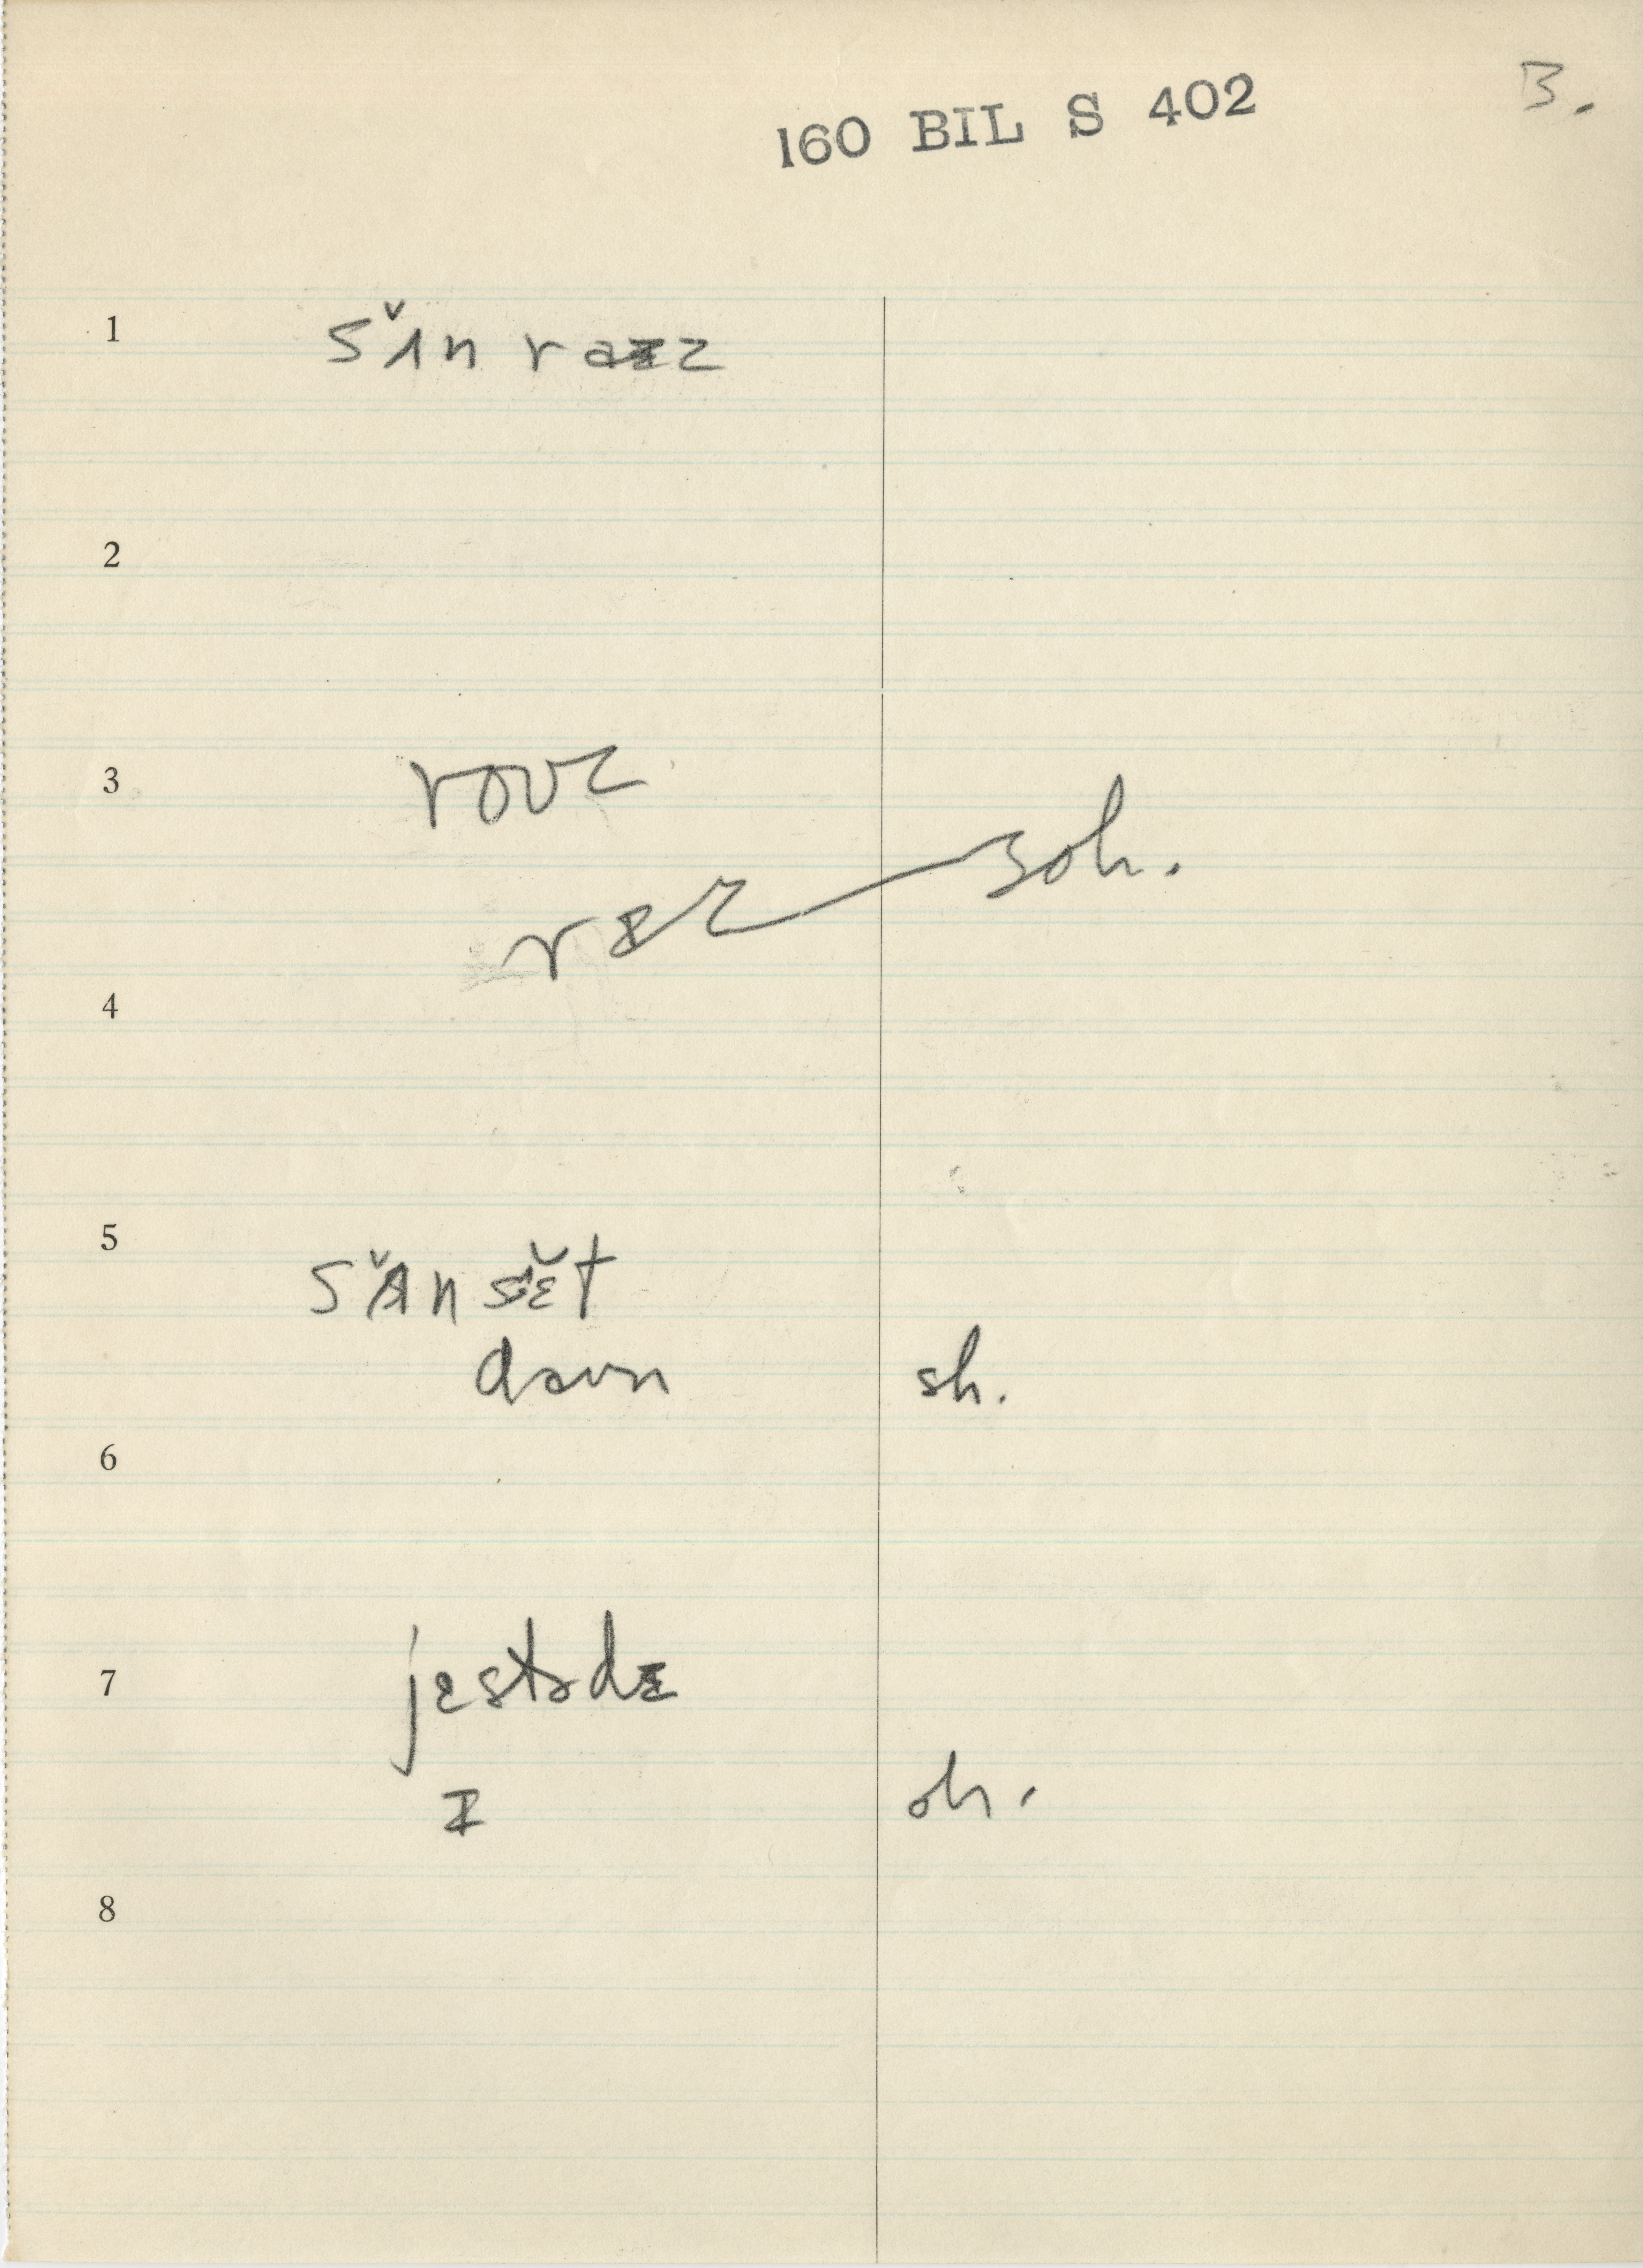 160 BIL S 402
3.
1 sʌ̆n raɪz
2
3 rouz
soh.
4
5 sʌ̆n sɛ̆t
daun sh.
6
7 jɛstɚdɪ
ɪ oh.
8